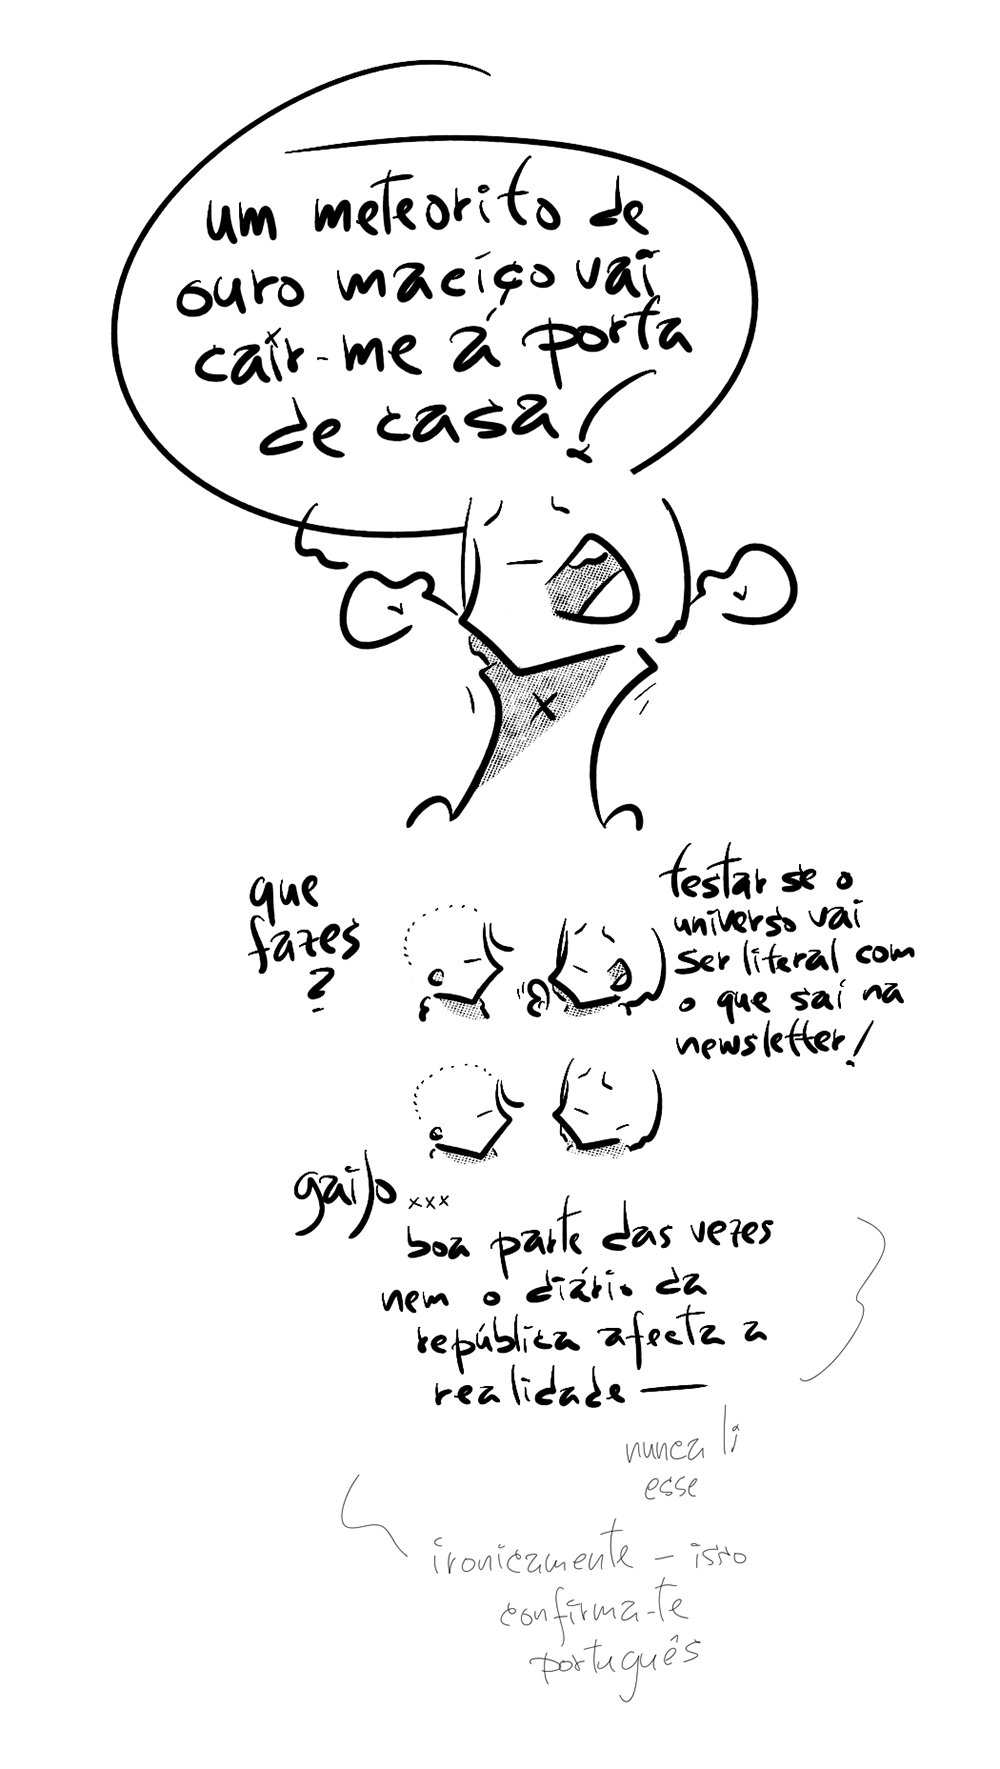 um meteorito de
ouro maciço vai
cair-me á porta
de casa!
que
fazes
?
testar se o
universo vai
ser literal com
o que sai na
newsletter!
gajo xxx
boa parte das vezes
nem o diário da
república afecta a
realidade —
nunca li
esse
ironicamente – isso
confirma-te
português